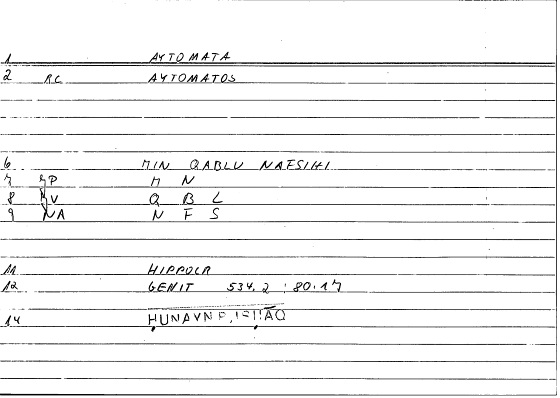 1 AYTOMATA
2 RC AYTOMATOS
6 MIN QABLU NAFSIHI
7 MP M N
8 NV Q B L
9 NA N F S
11 HIPPOCR
12 GENIT 534.2 : 80.17
14